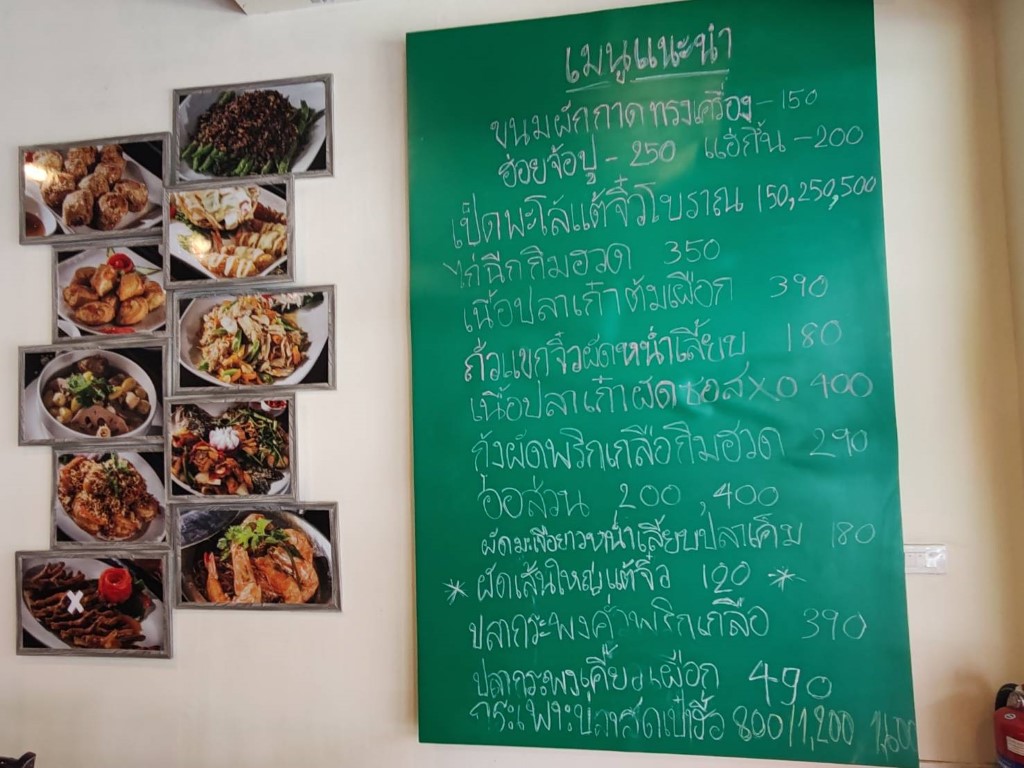 เมนูแนะนำ
ขนมผักกาดทรงเครื่อง-150
ฮ่อยจ้อปู - 250 แฮ่กึ้น -200
เป็ดพะโล้แต้จิ๋วโบราณ 150,250,500
ไก่ฉีกกิมฮวด 350
เนื้อปลาเก๋าต้มเผือก 390
ถั่วแขกจิ๋วผัดหนำเลี้ยบ 180
เนื้อปลาเก๋าผัดซอสXO 400
กุ้งผัดพริกเกลือกิมฮวด 290
ออส่วน 200,400
ผัดมะเขือยาวหนำเลี้ยบปลาเค็ม 180
* ผัดเส้นใหญ่แต้จิ๋ว 120 *
ปลากระพงคั่วพริกเกลือ 390
ปลากระพงเคี่ยวเผือก 490
กระเพาะปลาสดเป๋าฮื้อ 800/1,200 1,600